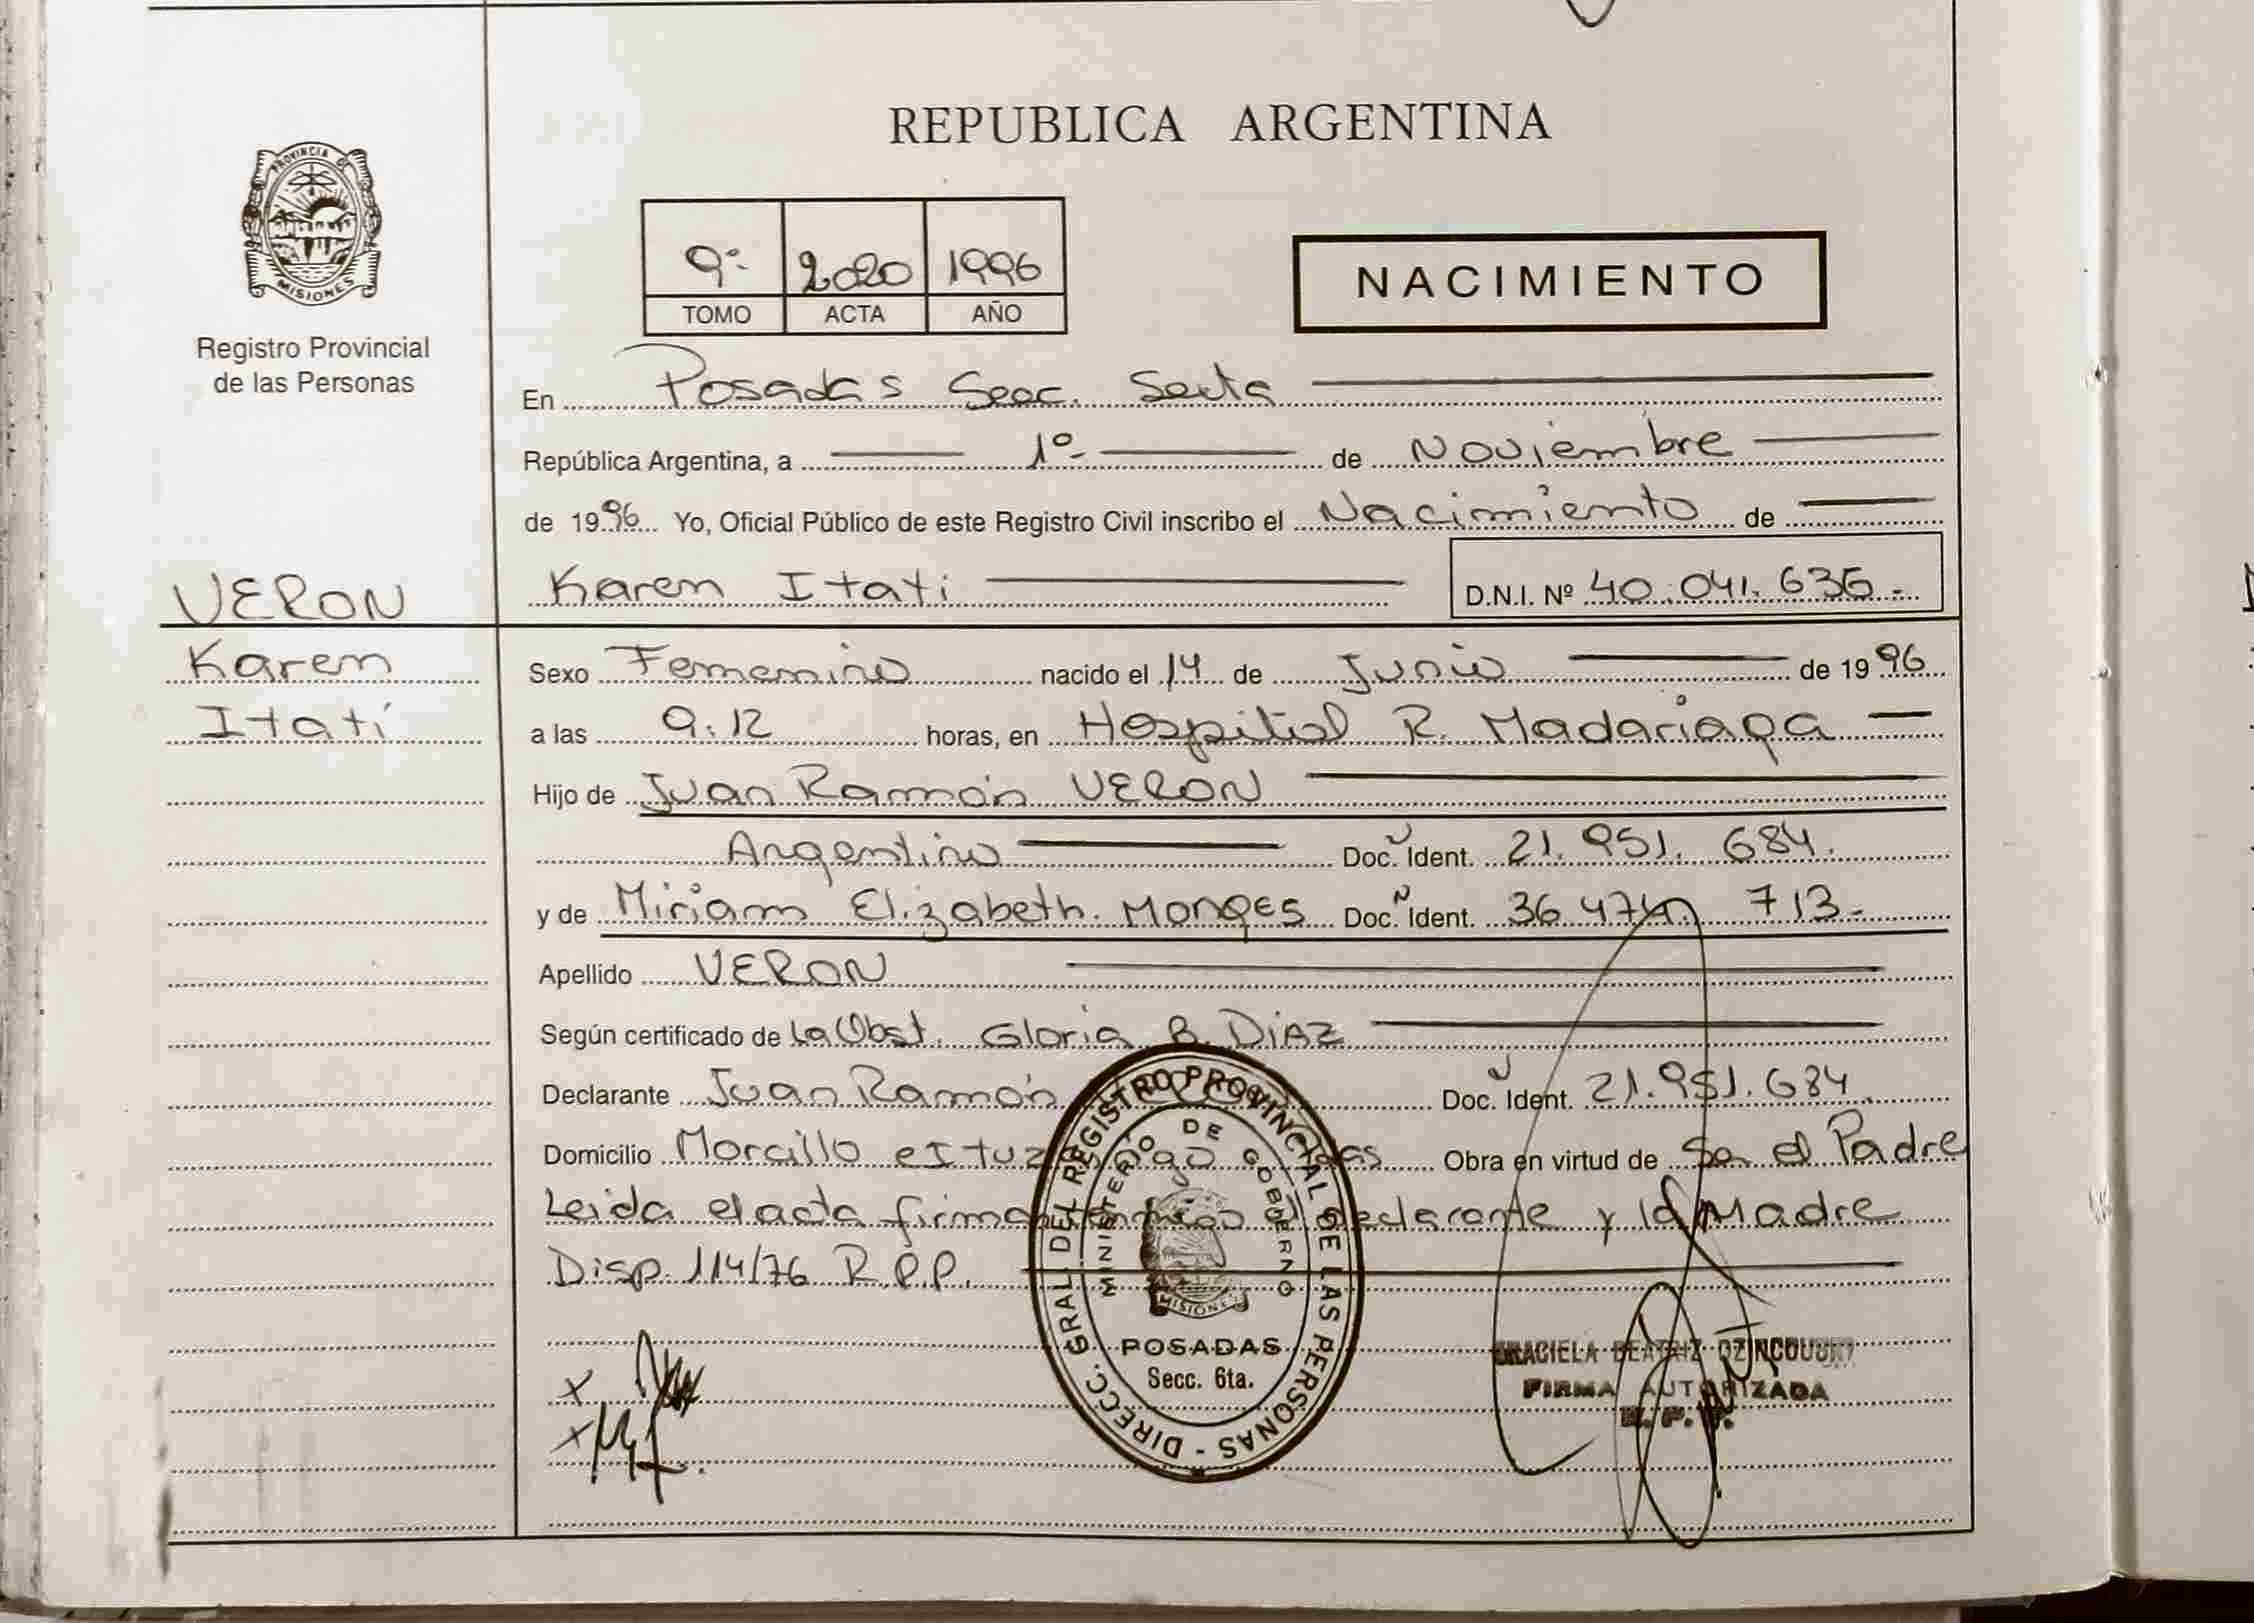 REPUBLICA ARGENTINA
PROVINCIA DE
MISIONES
Registro Provincial
de las Personas
9º 2020 1996
TOMO ACTA AÑO
NACIMIENTO
En Posadas Secc. Sexta
República Argentina, a 1º de Noviembre
de 1996 Yo, Oficial Público de este Registro Civil inscribo el Nacimiento de
VERON
Karen Itati D.N.I. Nº 40.041.636.-
Karen
Itatí
Sexo Femenino nacido el 14 de Junio de 1996
a las 9:12 horas, en Hospital R. Madariaga
Hijo de Juan Ramón VERON
Argentino Doc. Ident. 21.951.684.
y de Miriam Elizabeth. MONGES Doc. Ident. 36 474 713.-
Apellido VERON
Según certificado de La Obst. Gloria B. DIAZ
Declarante Juan Ramón Doc. Ident. 21.951.684.
Domicilio Morcillo e Ituzaingo Obra en virtud de Ser el Padre
Leida el acta firman conmigo el declarante y la Madre
Disp. 114/76 R.P.P.
DIRECC. GRAL. DEL REGISTRO PROVINCIAL DE LAS PERSONAS
MINISTERIO DE GOBIERNO
MISIONES
POSADAS
Secc. 6ta.
GRACIELA BEATRIZ
FIRMA AUTORIZADA